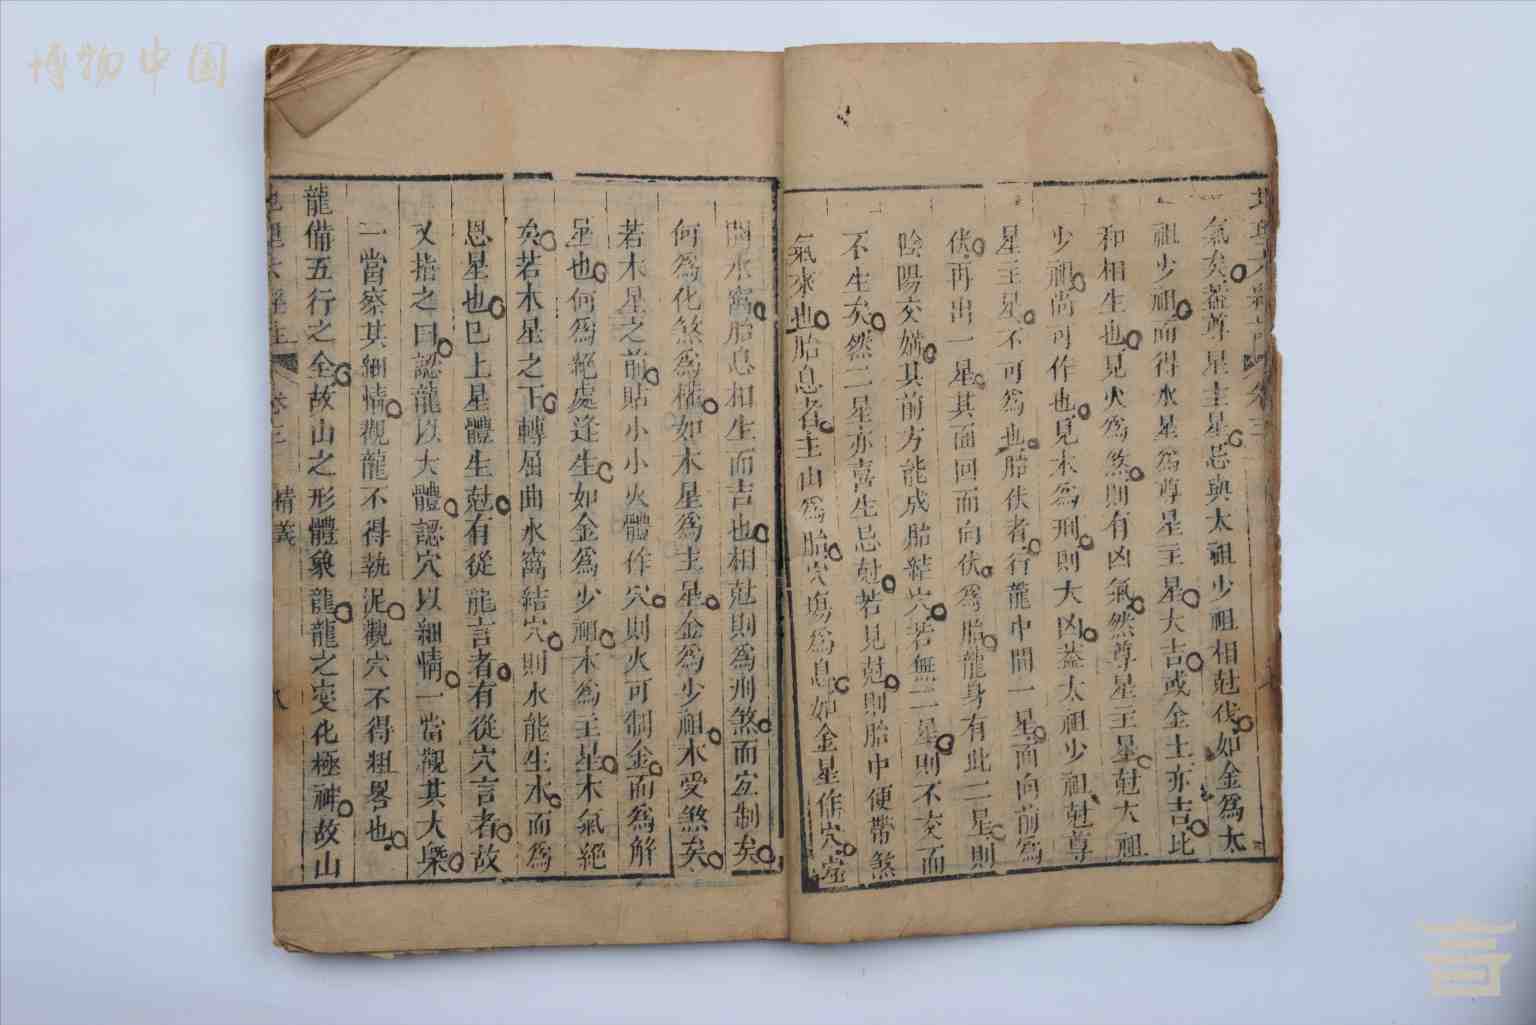 博物中国
氣矣蓋尊星主星忌與太祖少祖相尅伐如金爲太
祖少祖而得水星爲尊星主星大吉或金土亦吉比
和相生也見火爲煞則有凶氣然尊星主星尅大祖
少祖尚可作也見木爲刑則大凶蓋太祖少祖尅尊
星主星不可爲也胎伏者行龍中間一星面向前爲
伏再出一星其面回而向伏爲胎龍身有此二星則
陰陽交媾其前方能成胎結穴若無二星則不交而
不生矣然二星亦喜生忌尅若見尅則胎中便帶煞
氣來也胎息者主山爲胎穴塲爲息如金星作穴當
開水窩胎息相生而吉也相尅則爲刑煞而宜制矣
何爲化煞爲權如木星爲主星金爲少祖木受煞矣
若木星之前貼小小火體作穴則火可制金而爲解
星也何爲絕處逢生如金爲少祖木爲主星木氣絕
矣若木星之下轉屈曲水窩結穴則水能生木而爲
恩星也已上星體生尅有從龍言者有從穴言者故
又指之曰認龍以大體認穴以細情一當觀其大槩
一當察其細情觀龍不得執泥觀穴不得粗畧也
龍備五行之全故山之形體象龍龍之變化極神故山
卷三 精義 八